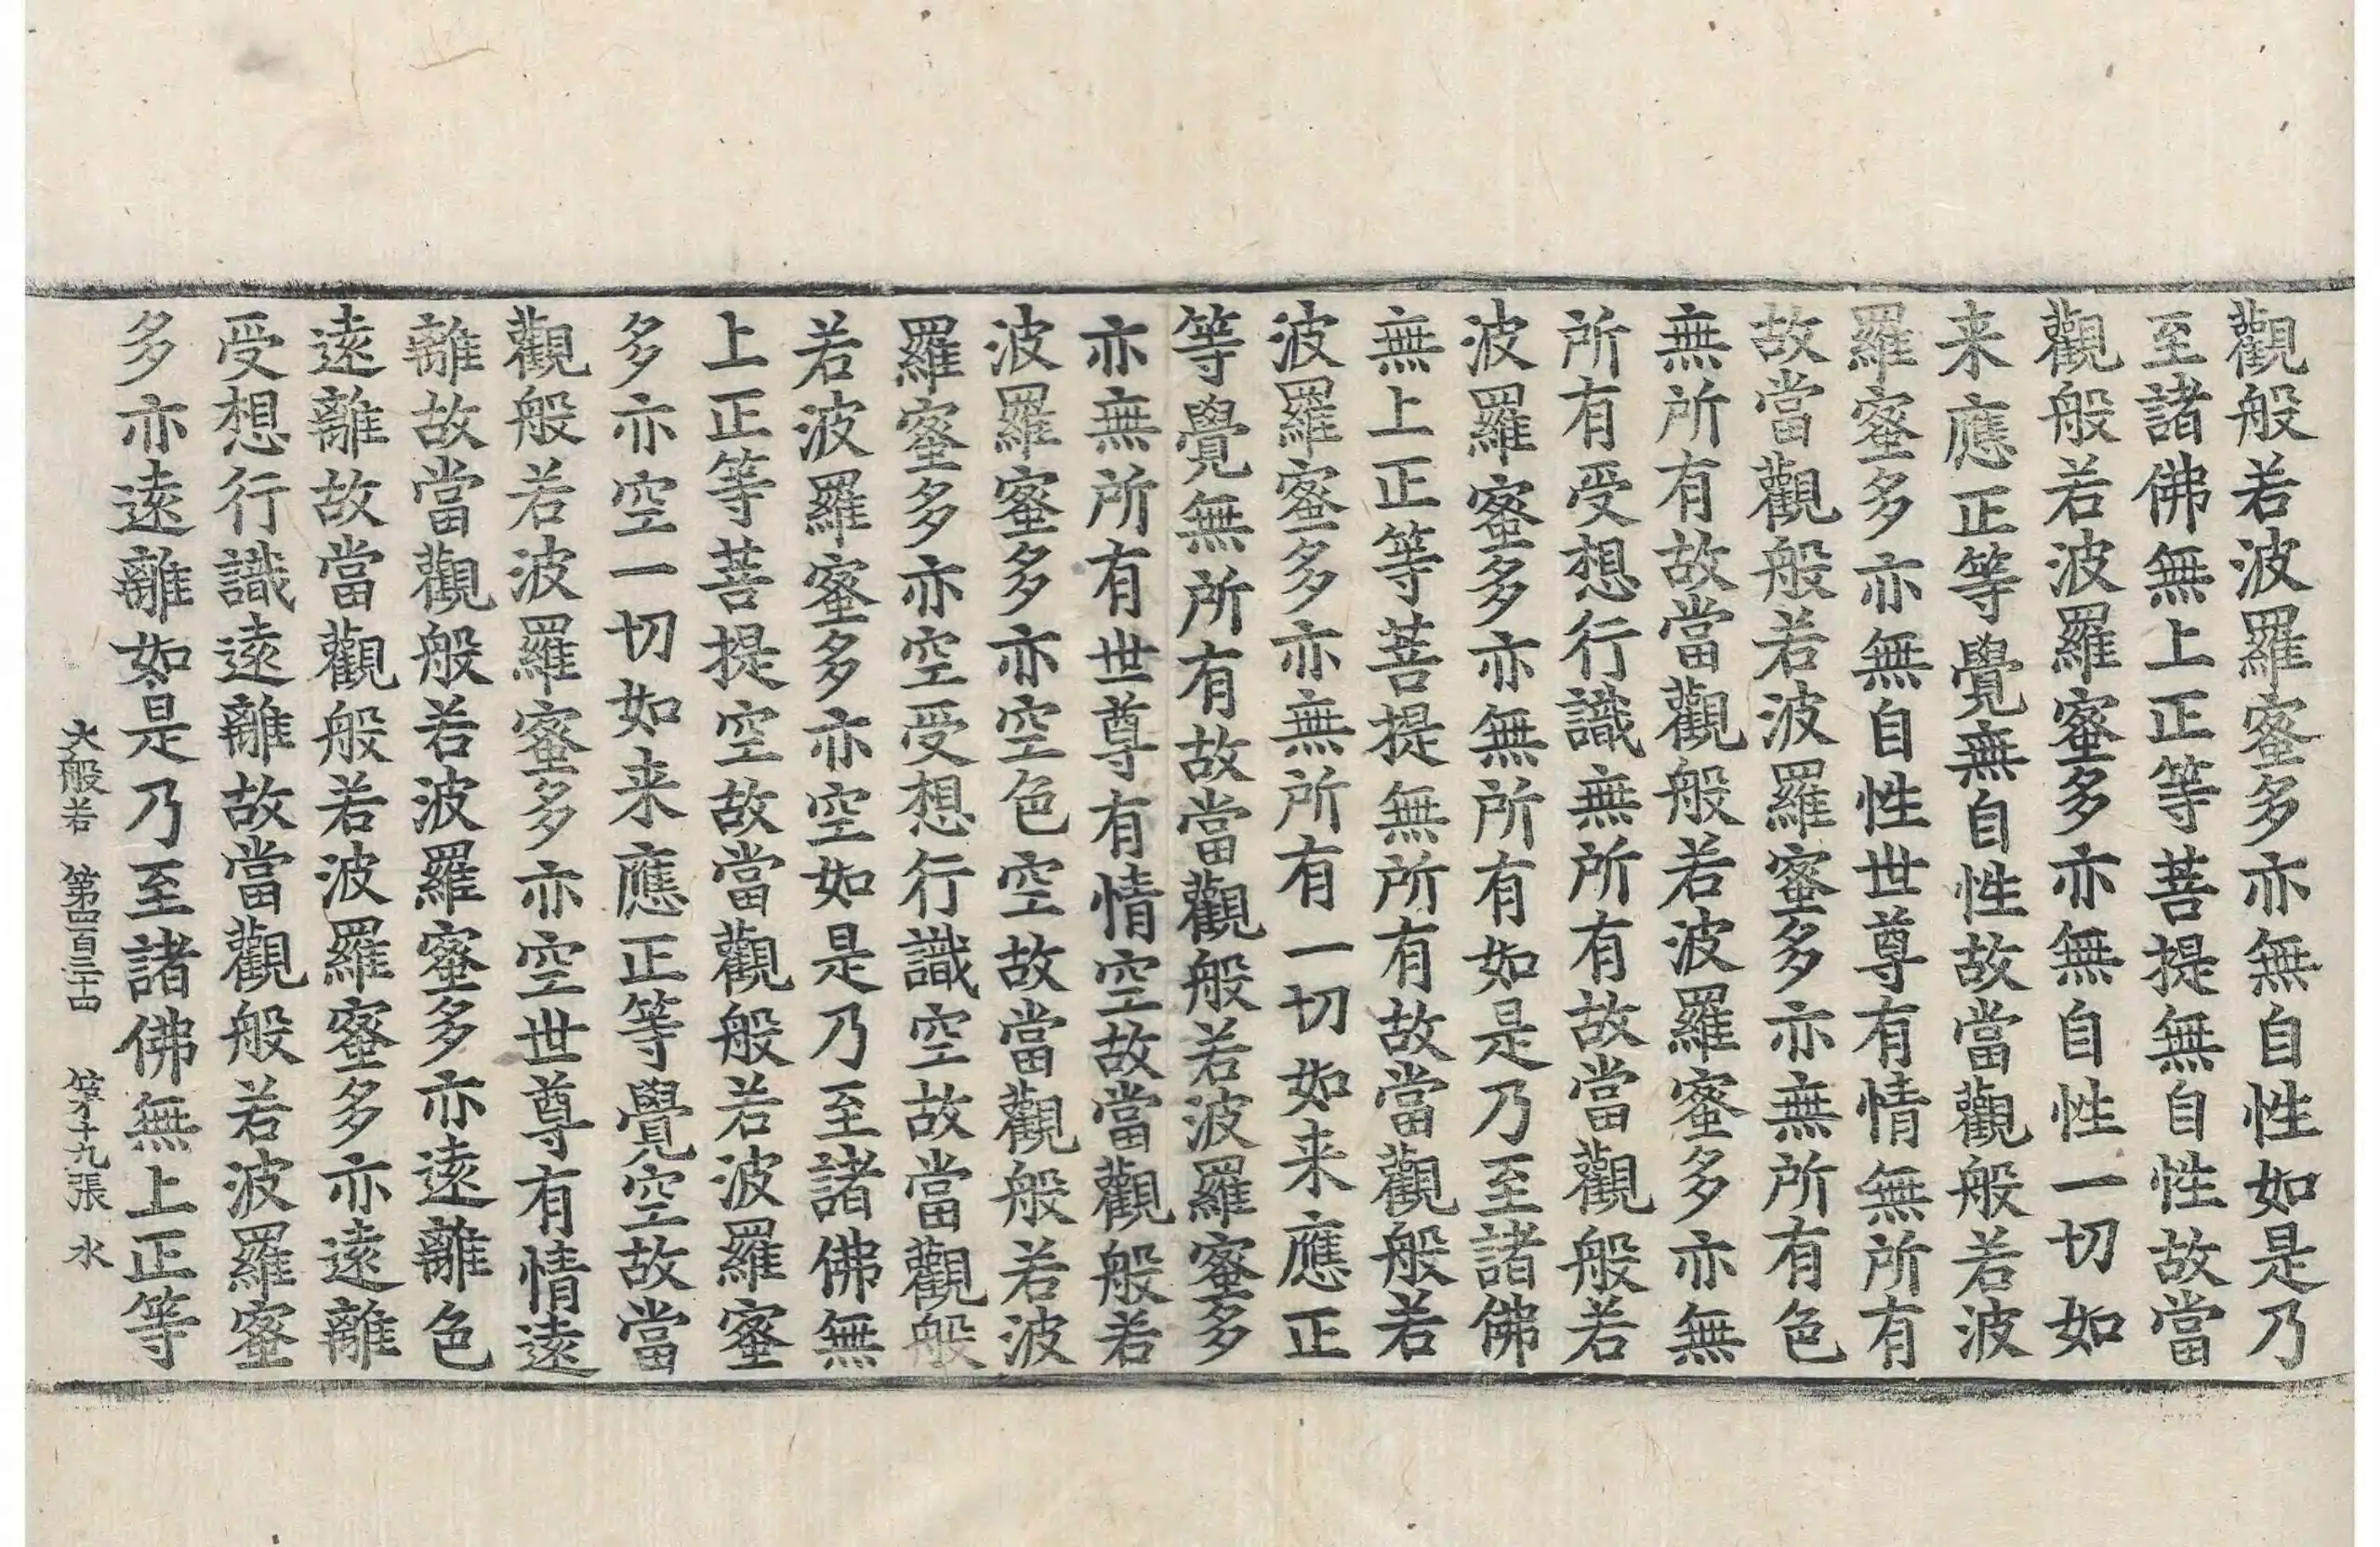 觀般若波羅蜜多亦無自性如是乃
至諸佛無上正等菩提無自性故當
觀般若波羅蜜多亦無自性一切如
来應正等覺無自性故當觀般若波
羅蜜多亦無自性世尊有情無所有
故當觀般若波羅蜜多亦無所有色
無所有故當觀般若波羅蜜多亦無
所有受想行識無所有故當觀般若
波羅蜜多亦無所有如是乃至諸佛
無上正等菩提無所有故當觀般若
波羅蜜多亦無所有一切如来應正
等覺無所有故當觀般若波羅蜜多
亦無所有世尊有情空故當觀般若
波羅蜜多亦空色空故當觀般若波
羅蜜多亦空受想行識空故當觀般
若波羅蜜多亦空如是乃至諸佛無
上正等菩提空故當觀般若波羅蜜
多亦空一切如来應正等覺空故當
觀般若波羅蜜多亦空世尊有情遠
離故當觀般若波羅蜜多亦遠離色
遠離故當觀般若波羅蜜多亦遠離
受想行識遠離故當觀般若波羅蜜
多亦遠離如是乃至諸佛無上正等
大般若 第四百三十四 第十九張 水